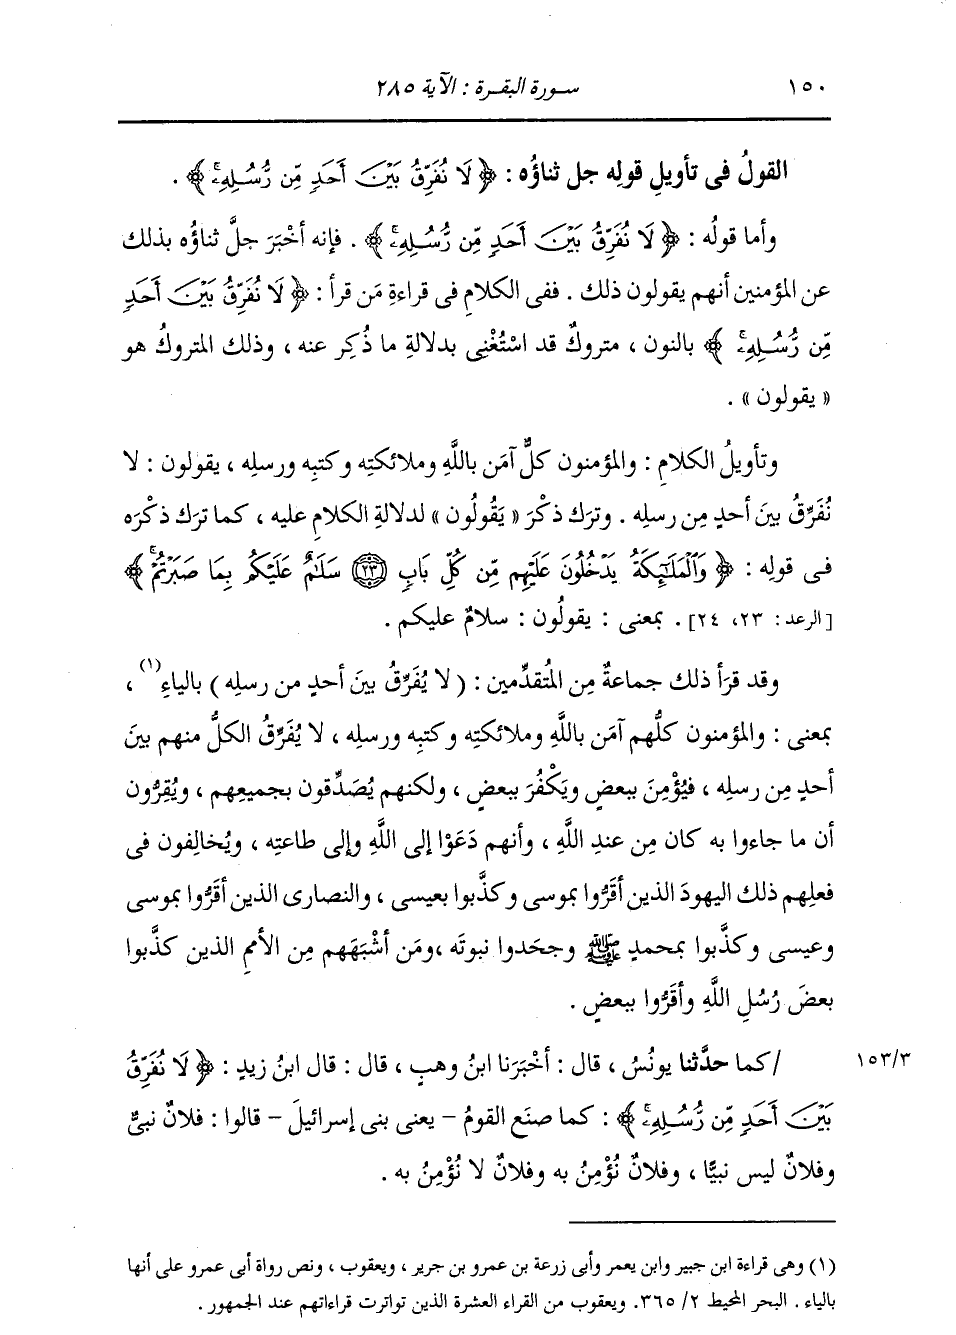 ١٥٠ سورة البقرة : الآية ٢٨٥
القولُ فى تأويلِ قولِه جل ثناؤُه : ﴿ لَا نُفَرِّقُ بَيْنَ أَحَدٍ مِّن رُّسُلِهِۦ ﴾ .
وأما قولُه : ﴿ لَا نُفَرِّقُ بَيْنَ أَحَدٍ مِّن رُّسُلِهِۦ ﴾ . فإنه أخْبَرَ جلَّ ثناؤُه بذلك
عن المؤمنين أنهم يقولون ذلك . ففى الكلامِ فى قراءةِ مَن قرأ : ﴿ لَا نُفَرِّقُ بَيْنَ أَحَدٍ
مِّن رُّسُلِهِۦ ﴾ بالنون ، متروكٌ قد اسْتُغْنِى بدلالةِ ما ذُكِر عنه ، وذلك المتروكُ هو
« يقولون » .
وتأويلُ الكلامِ : والمؤمنون كلٌّ آمَن باللَّهِ وملائكتِه وكتبِه ورسلِه ، يقولون : لا
نُفَرِّقُ بينَ أحدٍ مِن رسلِه . وترَك ذكْرَ « يَقُولُون » لدلالةِ الكلامِ عليه ، كما ترَك ذكْرَه
فى قولِه : ﴿ وَٱلْمَلَٰٓئِكَةُ يَدْخُلُونَ عَلَيْهِم مِّن كُلِّ بَابٍ ۝٢٣ سَلَٰمٌ عَلَيْكُم بِمَا صَبَرْتُمْ ۚ ﴾
[الرعد: ٢٣، ٢٤] . بمعنى : يقولُون : سلامٌ عليكم .
وقد قرَأ ذلك جماعةٌ مِن المُتقدِّمين : ( لا يُفَرِّقُ بينَ أحدٍ من رسلِه ) بالياءِ(١) ،
بمعنى : والمؤمنون كلُّهم آمَن باللَّهِ وملائكتِه وكتبِه ورسلِه ، لا يُفَرِّقُ الكلُّ منهم بينَ
أحدٍ مِن رسلِه ، فيُؤْمِنَ ببعضٍ ويَكْفُرَ ببعضٍ ، ولكنهم يُصَدِّقون بجميعِهم ، ويُقِرُّون
أن ما جاءوا به كان مِن عندِ اللَّهِ ، وأنهم دَعَوْا إلى اللَّهِ وإلى طاعتِه ، ويُخالِفون فى
فعلِهم ذلك اليهودَ الذين أقَرُّوا بموسى وكذَّبوا بعيسى ، والنصارى الذين أقَرُّوا بموسى
وعيسى وكذَّبوا بمحمدٍ ﷺ وجحَدوا نبوتَه ،ومَن أشْبَهَهم مِن الأممِ الذين كذَّبوا
بعضَ رُسُلِ اللَّهِ وأقَرُّوا ببعضٍ .
١٥٣/٣ /كما حدَّثنا يونُسُ ، قال : أخْبَرَنا ابنُ وهبٍ ، قال : قال ابنُ زيدٍ : ﴿ لَا نُفَرِّقُ
بَيْنَ أَحَدٍ مِّن رُّسُلِهِۦ ﴾ : كما صنَع القومُ - يعنى بنى إسرائيلَ - قالوا : فلانٌ نبىٌّ
وفلانٌ ليس نبيًّا ، وفلانٌ نُؤْمِنُ به وفلانٌ لا نُؤْمِنُ به .
(١) وهى قراءة ابن جبير وابن يعمر وأبى زرعة بن عمرو بن جرير ، ويعقوب ، ونص رواة أبى عمرو على أنها
بالياء . البحر المحيط ٢/ ٣٦٥. ويعقوب من القراء العشرة الذين تواترت قراءاتهم عند الجمهور .